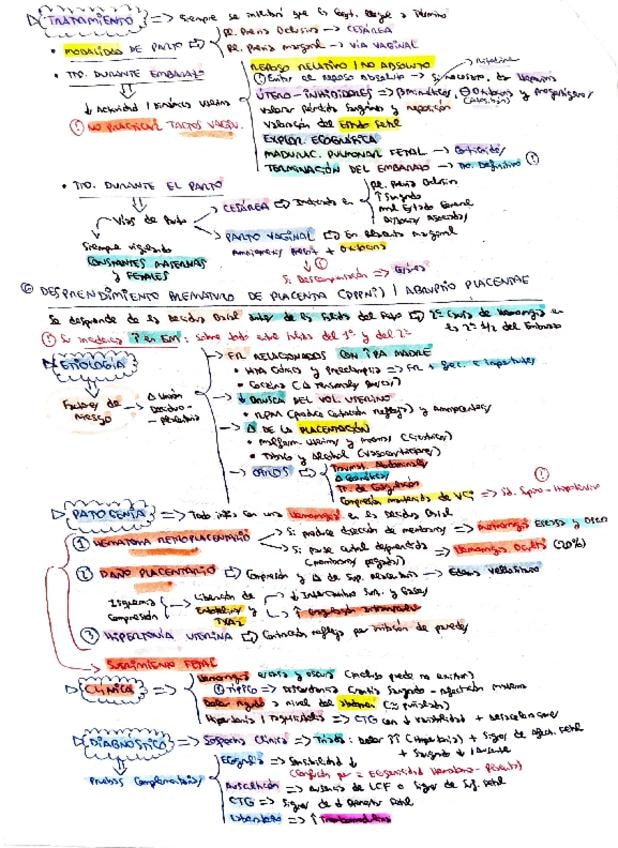 TRATAMIENTO => Siempre se intentará que la Gest. llegue a término
• MODALIDAD DE PARTO => pl. Previa Oclusiva -> CESÁREA
pl. Previa marginal -> VIA VAGINAL
• TTO. DURANTE EMBARAZO
REPOSO RELATIVO / NO ABSOLUTO
① Evitar el reposo absoluto -> Si necesitan, dar Heparina
↓ Actividad / Dinámica Uterina
ÚTERO-INHIBIDORES => βmiméticos,
① NO PRACTICAR TACTOS VAGIN.
Valorar pérdida Sanguínea y reposición
Valoración del Estado Fetal
EXPLOR. ECOGRÁFICA
MADURAC. PULMONAR FETAL -> Corticoides
TERMINACIÓN DEL EMBARAZO -> Tto. Definitivo ①
• TTO. DURANTE EL PARTO
Vías de Parto
-> CESÁREA => Indicada en
pl. Previa Oclusiva
↑ Sangrado
mal Estado General
Distocias Asociadas
-> PARTO VAGINAL => En placenta marginal
Siempre vigilando
CONSTANTES MATERNAS
y FETALES
+ Oxitocina
Si Descompensación => Cesárea
⑥ DESPRENDIMIENTO PREMATURO DE PLACENTA (DPPNI) / ABRUPTIO PLACENTAE
Se desprende de la Decidua Basal antes de la salida del Feto => 2ª Causa de Hemorragia en
la 2ª 1/2 del Embarazo
① Su incidencia ↑ en EM: sobre todo entre
ETIOLOGÍA
Factores de
riesgo
Δ Unión
Decidua-
placentaria
-> FR. RELACIONADOS CON TPA MADRE
• HTA Crónica y Preeclampsia => FR + frec. e importante
• Cocaína
-> ↓ BRUSCA DEL VOL. UTERINO
• RPM (produce contracción refleja) y Amniocentesis
-> Δ DE LA PLACENTACIÓN
• Malform. Uterinas y miomas
• Tabaco y Alcohol (vasoconstrictores)
-> OTROS
Traumat. Abdominales
Δ Genéticas
Tr. de Coagulación
Compresión mantenida de VCI => Sd. Supino-Hipotensivo
PATOGENIA => Todo inicia con una Hemorragia en la Decidua Basal
① HEMATOMA RETROPLACENTARIO
-> Si produce disección de membranas => Metrorragia Escasa y Oscura
-> Si parte central desprendida => Hemorragia Oculta (20%)
(membranas pegadas)
② DAÑO PLACENTARIO => Compresión y Δ de Sup. placentaria -> Edema Vellositario
Isquemia
Compresión
-> Liberación de
Endotelina y
TXA2
↓ Intercambio Sang. y Gases
↑ Coagulación Intravascular
③ HIPERTONÍA UTERINA => Contracción refleja por irritación de paredes
-> SUFRIMIENTO FETAL
CLÍNICA =>
Hemorragia escasa y oscura (incluso puede no existir)
① TÍPICO => Discordancia Cuantía Sangrado - afectación materna
Dolor Agudo a nivel del Abdomen (≈ puñalada)
Hipertonía / => CTG con ↓ variabilidad + Desaceleraciones
DIAGNÓSTICO => Sospecha Clínica => Triada: Dolor ↑↑ (Hipertonía) + Signos de afect. Fetal
+ Sangrado ↓ / Ausente
Pruebas Complementarias
Ecografía => Sensibilidad ↓
(Confusión por = Ecogenicidad Hematoma-Placenta)
Auscultación => ausencia de LCF o Signos de Suf. Fetal
CTG => Signos de ↓ Bienestar Fetal
Laboratorio => ↑ Trombomodulina